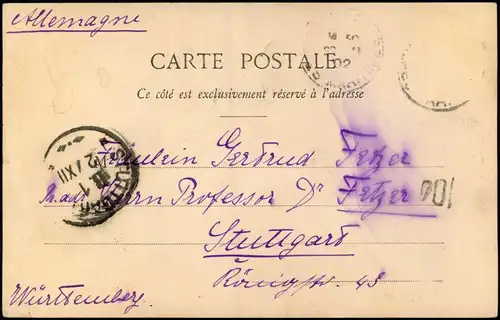 Allemagne
CARTE POSTALE
Ce côté est exclusivement réservé à l'adresse
Fräulein Gertrud Tetzer
adr. Herrn Professor Dr Tetzer
Stuttgart
Königstr. 48
Württemberg.